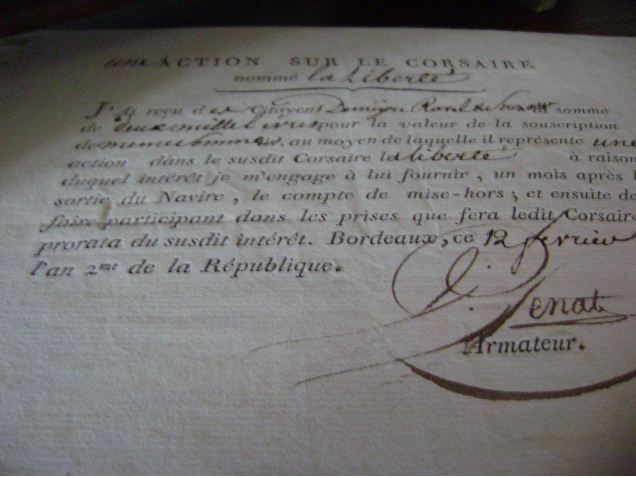 une ACTION SUR LE CORSAIRE
nommé la Liberté
J'ai reçu des Citoyens la somme
de deux mille livres pour la valeur de la souscription
de même somme, au moyen de laquelle il représente une
action dans le susdit Corsaire la liberté à raison
duquel intérêt je m'engage à lui fournir, un mois après l
sortie du Navire, le compte de mise-hors; et ensuite de
faire participant dans les prises que fera ledit Corsaire
prorata du susdit intérêt. Bordeaux, ce 12 fevrier
l'an 2me de la République.
Penat
Armateur.